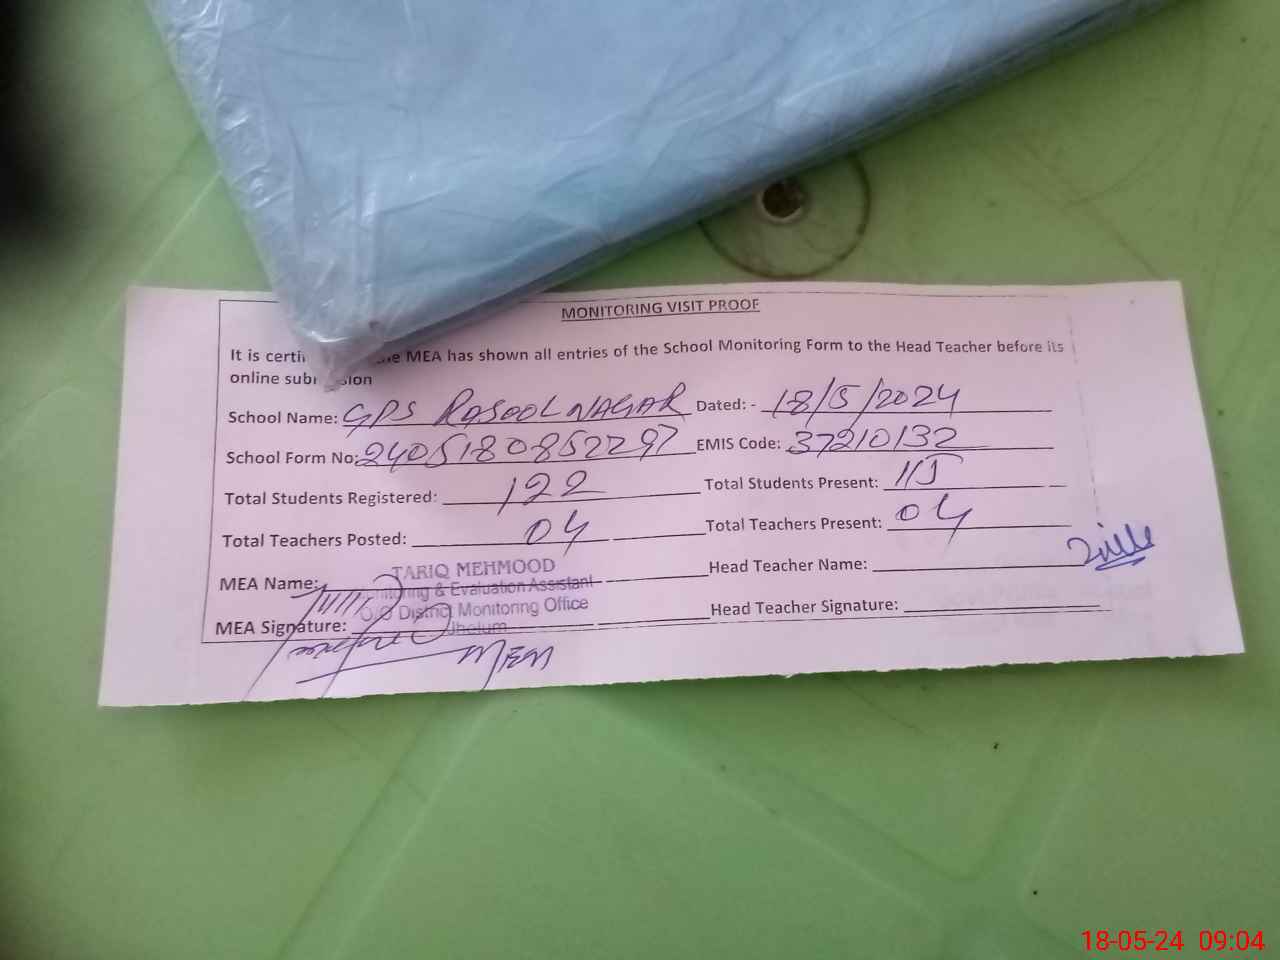 MONITORING VISIT PROOF
It is certi he MEA has shown all entries of the School Monitoring Form to the Head Teacher before its
online sub sion
School Name: GPS RASOOL NAGAR Dated: - 18/5/2024
School Form No: 2405180852297 EMIS Code: 37210132
Total Students Registered: 122 Total Students Present: 115
Total Teachers Posted: 04 Total Teachers Present: 04
MEA Name: TARIQ MEHMOOD Head Teacher Name:
Monitoring & Evaluation Assistant
O/O District Monitoring Office
MEA Signature: Jhelum Head Teacher Signature:
MEA
18-05-24 09:04